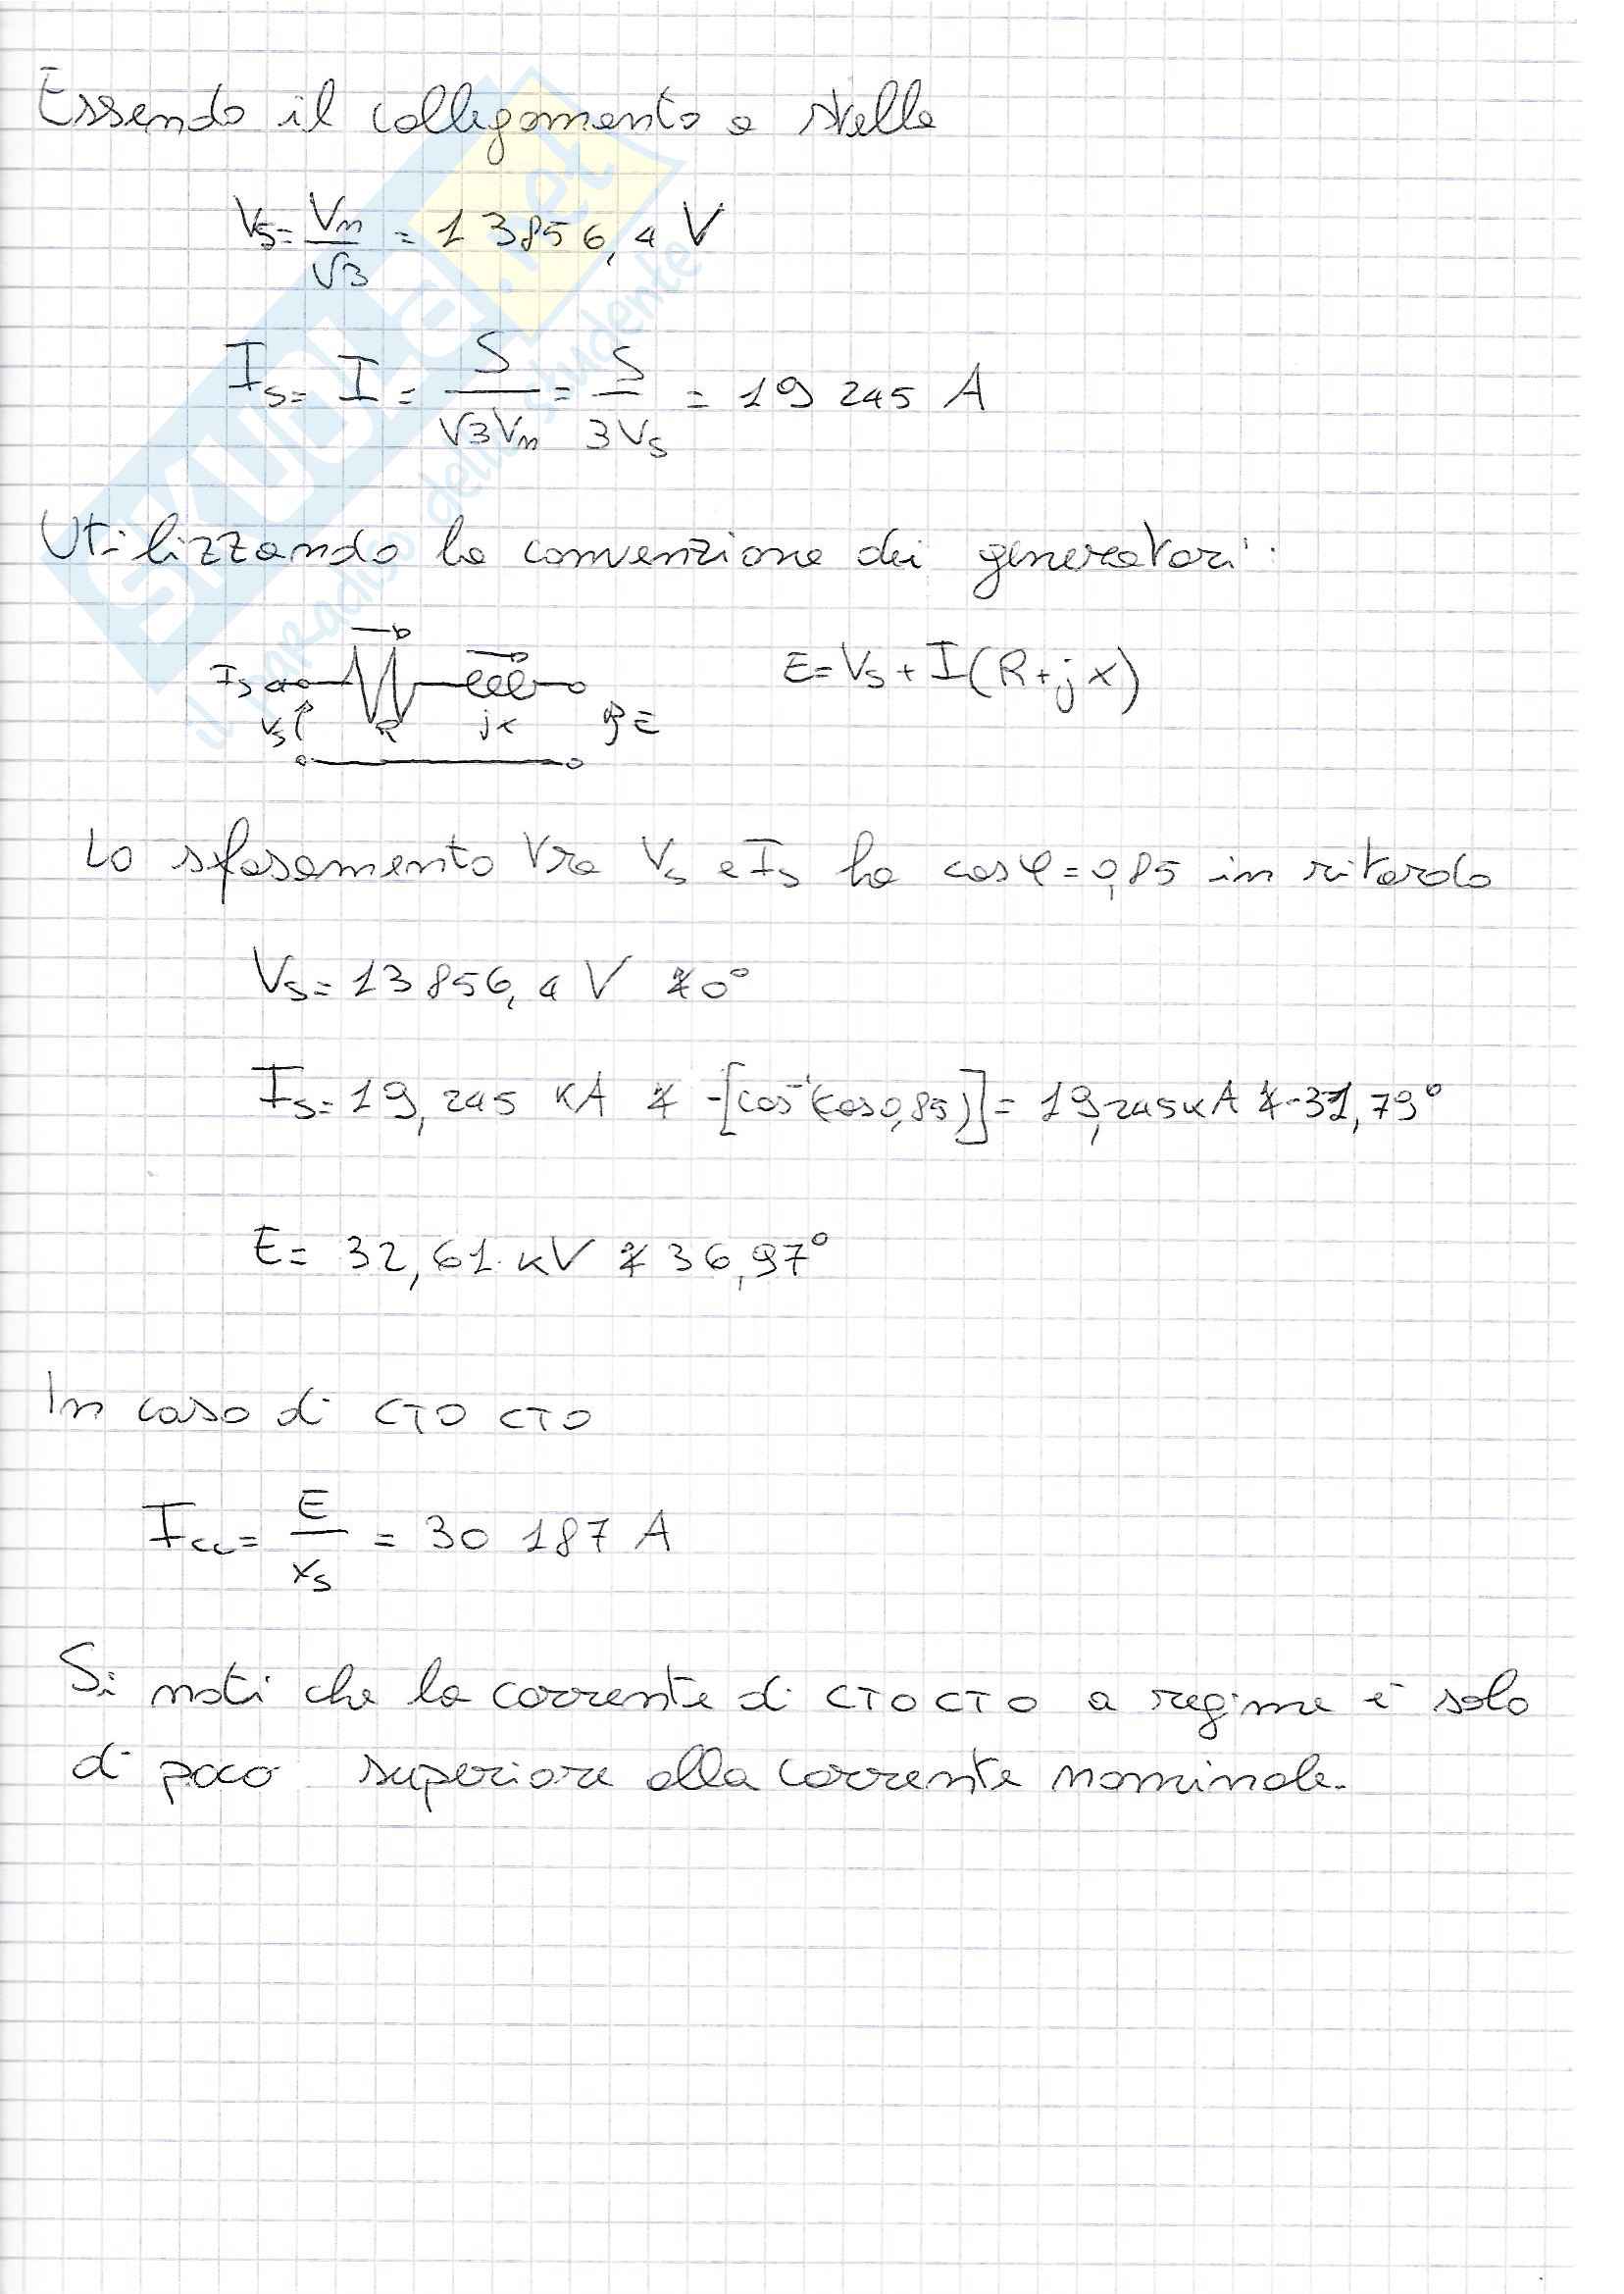 Essendo il collegamento a stella
Vs = Vn/√3 = 13856,4 V
Is = I = S/√3Vn = S/3Vs = 19 245 A
Utilizzando la convenzione dei generatori:
Is Vs R jx E
E = Vs + I(R + jx)
Lo sfasamento tra Vs e Is ha cosφ = 0,85 in ritardo
Vs = 13856,4 V ∡0°
Is = 19,245 kA ∡ -[cos⁻¹(cos0,85)] = 19,245kA ∡-31,79°
E = 32,61 kV ∡36,97°
In caso di CTO CTO
Icc = E/xs = 30 187 A
Si noti che la corrente di CTO CTO a regime è solo
di poco superiore alla corrente nominale.
SKUOLA.net
il paradiso dello studente